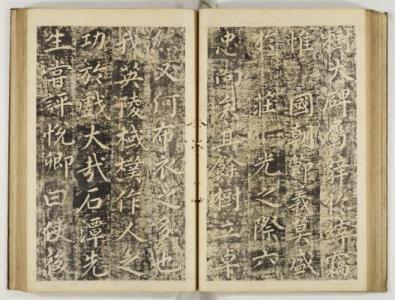 樹大碑
惟 國朝節義莫盛
於莊 光之際六
忠尚矣其餘樹立卓
然又何布衣之多也
我英陵棫樸作人之
功於戲大哉石潭先
生嘗評悅卿曰使後